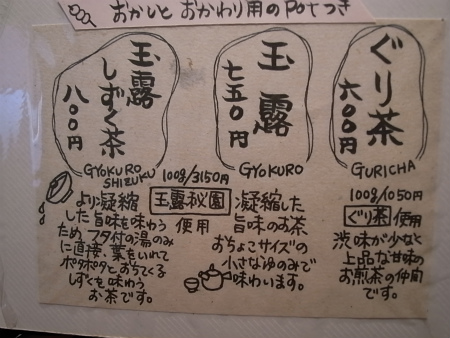 おかしと おかわり用のPotつき
ぐり茶
六〇〇円
GURICHA
100g/1050円
ぐり茶 使用
渋味が少なく
上品な甘味の
お煎茶の仲間
です。
玉露
七五〇円
GYOKURO
100g/3150円
玉露祕園 使用
凝縮した
旨味のお茶
おちょこサイズの
小さなゆのみで
味わいます。
玉露
しずく茶
八〇〇円
GYOKURO
SHIZUKU
より凝縮
した旨味を味わう
ため、フタ付の湯のみ
に直接、葉をいれて
ポタポタとおちてくる
しずくを味わう
お茶です。